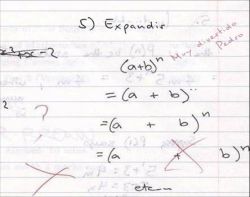 5) Expandir
x²+x-2
(a+b)ⁿ
Muy divertido
Pedro
= (a + b)ⁿ
2
?
= (a + b)ⁿ
= (a + b)ⁿ
etc...